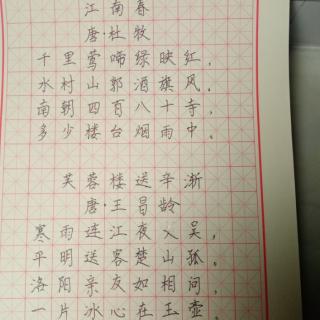 江南春
唐·杜牧
千里莺啼绿映红，
水村山郭酒旗风，
南朝四百八十寺，
多少楼台烟雨中。
芙蓉楼送辛渐
唐·王昌龄
寒雨连江夜入吴，
平明送客楚山孤。
洛阳亲友如相问，
一片冰心在玉壶。